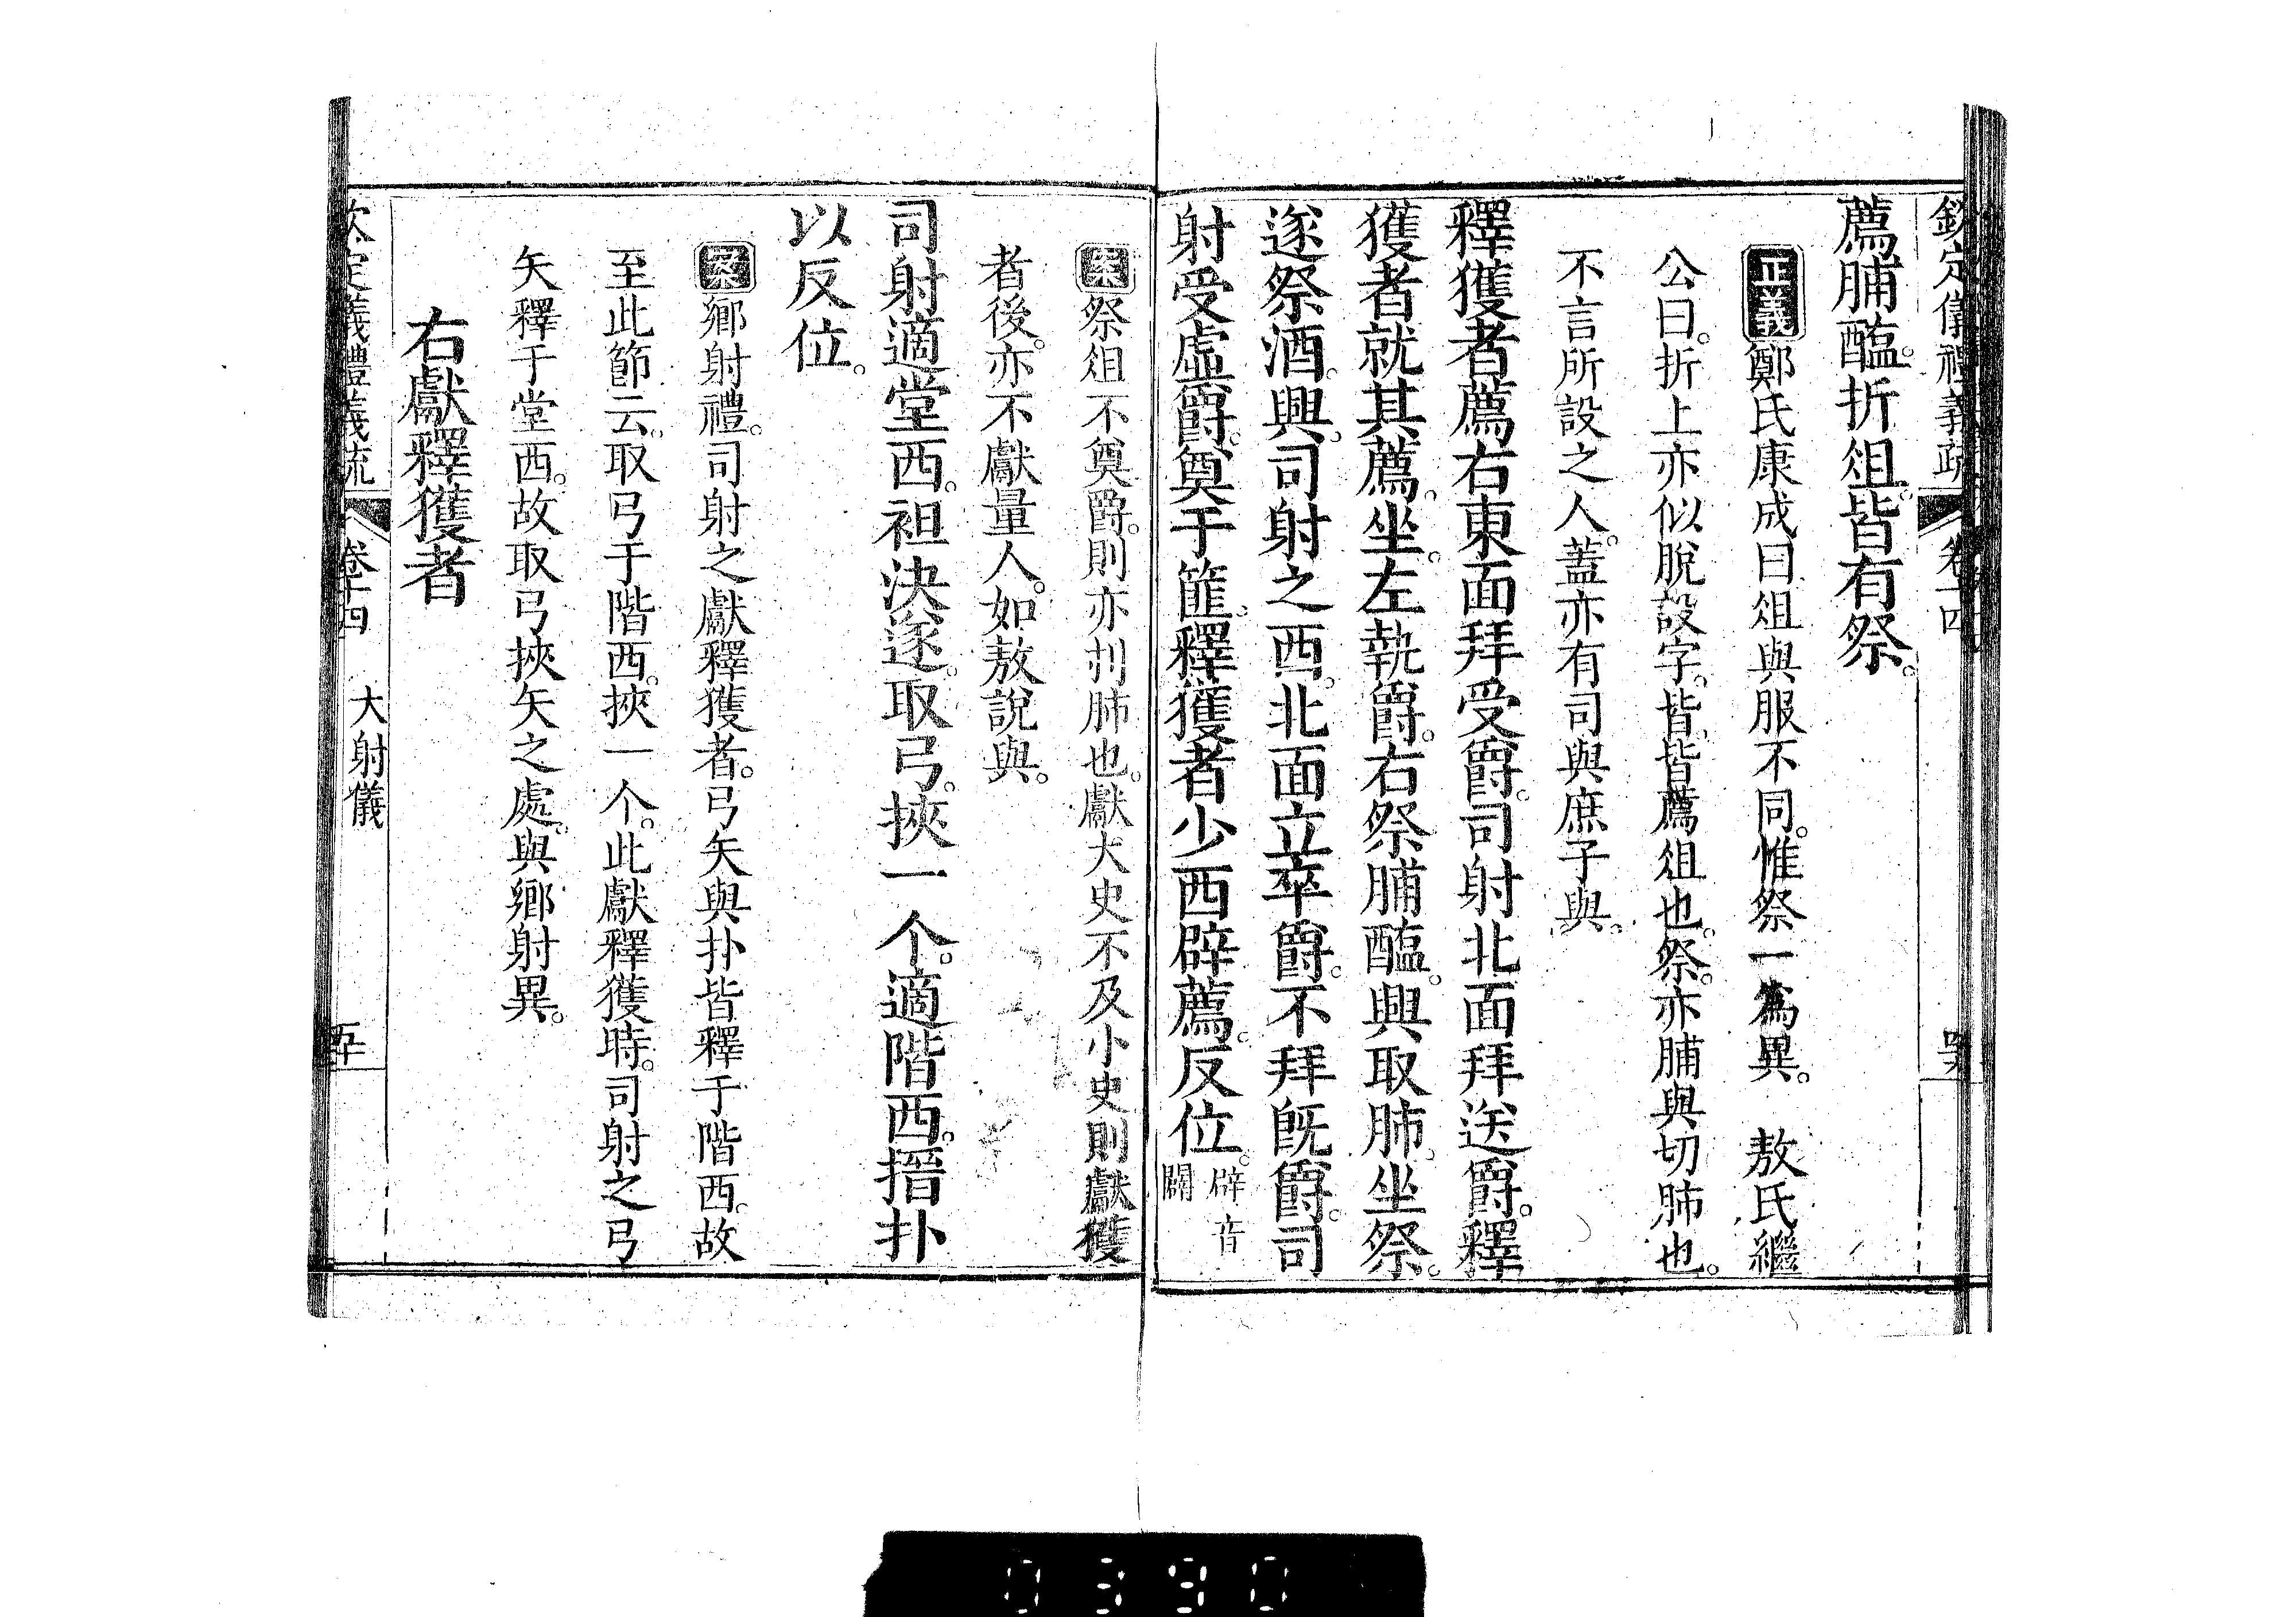 欽定儀禮義疏 卷十四
薦脯醢。折俎。皆有祭。
正義鄭氏康成曰俎與服不同。惟祭一為異。 敖氏繼
公曰。折上亦似脫設字。皆。皆薦俎也。祭。亦脯與切肺也。
不言所設之人。蓋亦有司與庶子與。
釋獲者薦右東面拜受爵。司射北面拜送爵。釋
獲者就其薦。坐。左執爵。右祭脯醢。興取肺。坐祭。
遂祭酒。興。司射之西。北面立卒爵。不拜旣爵。司
射受虛爵。奠于篚。釋獲者少西辟薦。反位。辟音
闢
案祭俎不奠爵。則亦刌肺也。獻大史不及小史則獻獲
者後。亦不獻量人。如敖說與。
司射適堂西。袒決遂。取弓。挾一个。適階西。搢扑
以反位。
案鄉射禮。司射之獻釋獲者。弓矢與扑皆釋于階西。故
至此節云。取弓于階西。挾一个。此獻釋獲時。司射之弓
矢釋于堂西。故取弓挾矢之處。與鄉射異。
右獻釋獲者
欽定儀禮義疏 卷十四 大射儀 五十
0390